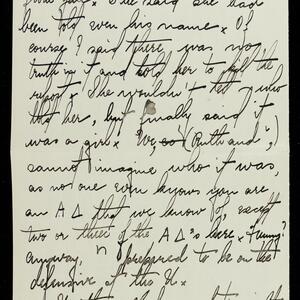 She said she had
been told even his name x Of
course I said there was no
truth in it and told her to the
report x She wouldn't tell who
told her, but finally said it
was a girl x We, ("Ruth and"),
cannot imagine who it was,
as no one even knows you are
an A Δ that we know of, except
two or three of the A Δ's here x Funny?
Anyway, prepared to be on the
defensive of the